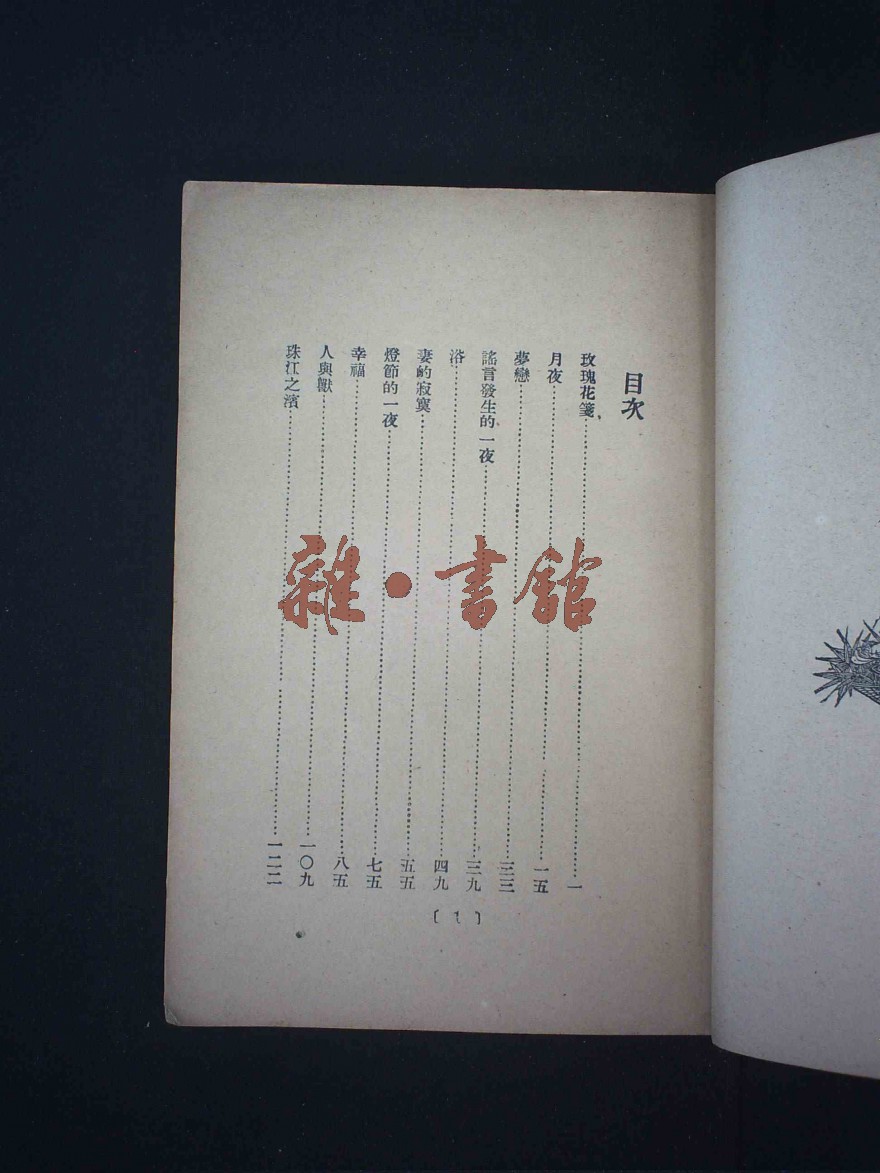 目次
玫瑰花箋……………………一
月夜……………………一五
夢戀……………………三三
謠言發生的一夜……………………三九
浴……………………四九
妻的寂寞……………………五五
燈節的一夜……………………七五
幸福……………………八五
人與獸……………………一〇九
珠江之濱……………………一二二
〔1〕
雜·書館